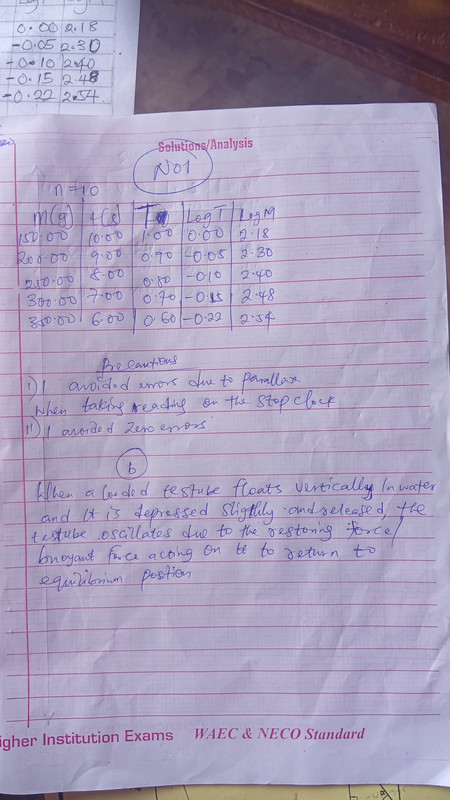 0.00 2.18
-0.05 2.30
-0.10 2.40
-0.15 2.48
-0.22 2.54
Solutions/Analysis
NO1
n = 10
m(g) t(s) T Log T Log M
150.00 10.00 1.00 0.00 2.18
200.00 9.00 0.90 -0.05 2.30
250.00 8.00 0.80 -0.10 2.40
300.00 7.00 0.70 -0.15 2.48
350.00 6.00 0.60 -0.22 2.54
Precautions
i) I avoided errors due to parallax
when taking reading on the stop clock
ii) I avoided zero errors
b
When a loaded testube floats vertically in water
and it is depressed sligthly and released, the
testube oscillates due to the restoring force/
buoyant force acong on it to return to
equilibrium postion
igher Institution Exams WAEC & NECO Standard